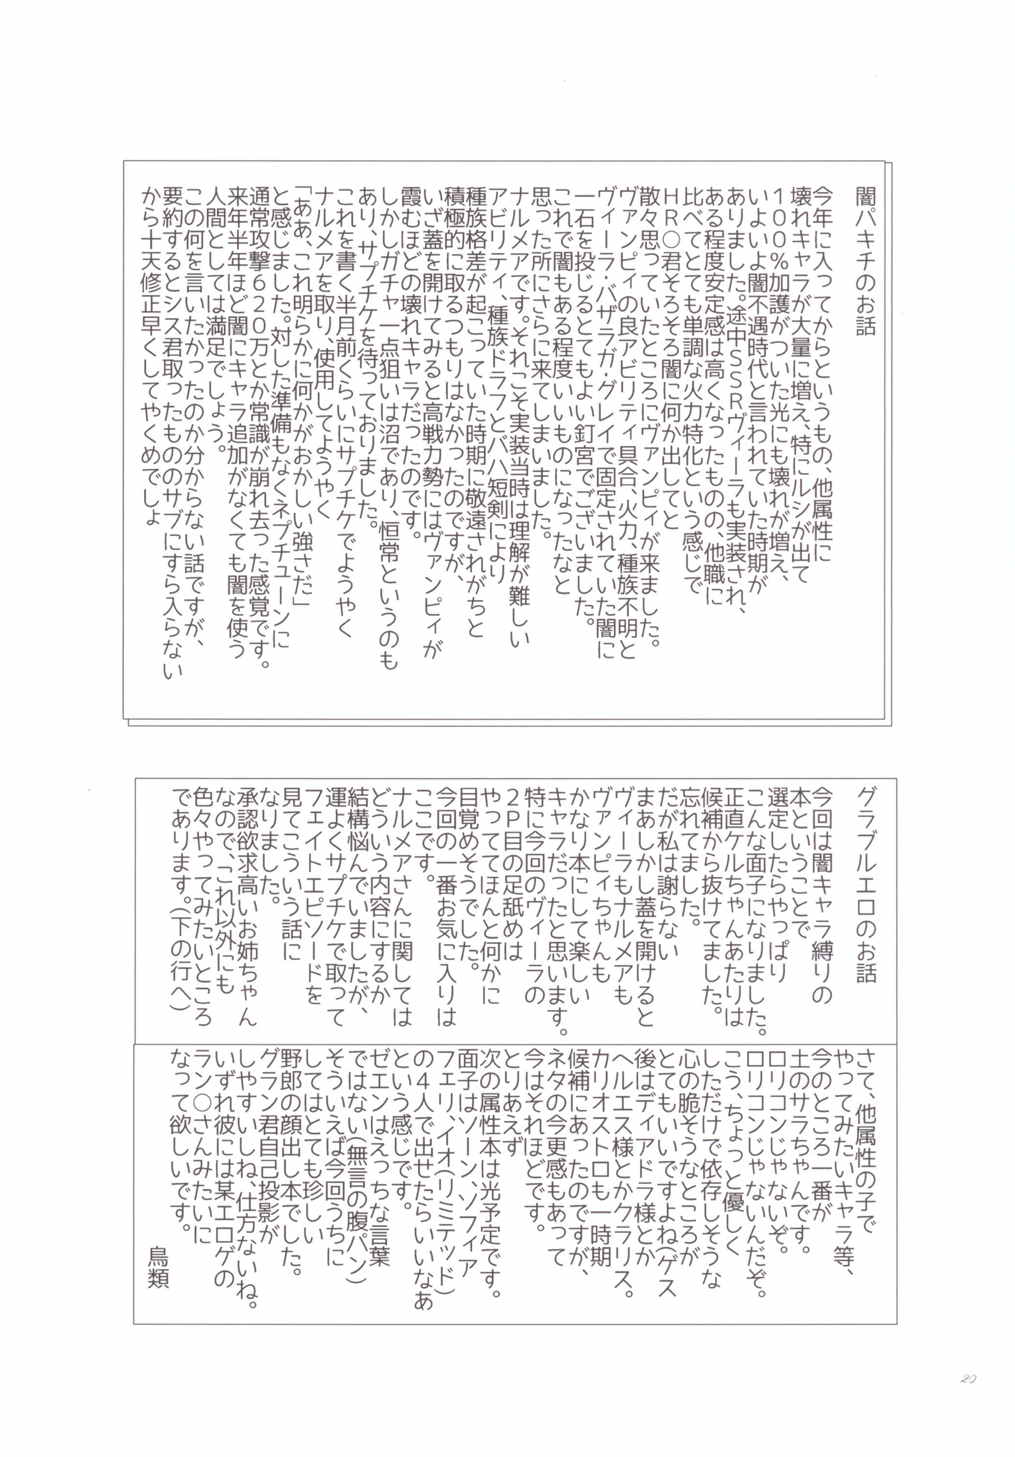 闇パキチのお話
今年に入ってからというもの、他属性に
壊れキャラが大量に増え、特にルシが出て
１００％加護がついた光にも壊れが増え、
いよいよ闇不遇時代と言われていた時期が
ありました。途中ＳＳＲヴィーラも実装され、
ある程度安定感は高くなったものの、他職に
比べてとても単調な火力特化という感じで
ＨＲ○君そろそろ闇に何か出してと
散々思っていたところにヴァンピィが来ました。
ヴァンピィの良アビリティ具合、火力、種族不明と
ヴィーラ・バザラガ・グレイで固定されていた闇に
一石を投じるとてもよい釘宮でございました。
これで闇もある程度いいものになったなと
思った所にさらに来てしまいました。
ナルメアです。それこそ実装当時は理解が難しい
アビリティ、種族ドラフとバハ短剣により
種族格差が起こっていた時期に敬遠されがちと
積極的に取るつもりはなかったのですが、
いざ蓋を開けてみると高戦力勢にはヴァンピィが
霞むほどの壊れキャラだったのです。
しかしガチャ一点狙いは沼であり、恒常というのも
あり、サプチケを待っておりました。
これを書く半月前くらいにサプチケでようやく
ナルメアを取り、使用してようやく
「ああ、これ明らかに何かがおかしい強さだ」
と感じました。対した準備もなくネプチューンに
通常攻撃６２０万とか常識が崩れ去った感覚です。
来年半年ほど闇にキャラ追加がなくても闇を使う
人間としては満足でしょう。
この何を言いたかったのか分からない話ですが、
要約するとシス君取ったもののサブにすら入らない
から十天修正早くしてやくめでしょ
グラブルエロのお話
今回は闇キャラ縛りの
本ということで
選定したらやっぱり
こんな面子になりました。
正直ケルちゃんあたりは
候補から抜けてました。
忘れてました。
だが私は謝らない
まあしかし蓋を開けると
ヴィーラもナルメアも
ヴァンピィちゃんも
かなり本にして楽しい
キャラだったと思います。
特に今回のヴィーラの
２Ｐ目の足舐めは
やってほんと何かに
目覚めそうでした。
今回の一番お気に入りは
ここです。
ナルメアさんに関しては
どういう内容にするか
結構悩んでいましたが、
運よくサプチケで取って
フェイトエピソードを
見てこういう話に
なりました。
承認欲求高いお姉ちゃん
なので、これ以外にも
色々やってみたいところ
であります。（下の行へ）
さて、他属性の子で
やってみたいキャラ等、
今のところ一番が
土のサラちゃんです。
ロリコンじゃないぞ。
ロリコンじゃないんだぞ。
こう、ちょっと優しく
しただけで依存しそうな
心の脆そうなところが
とてもいいですよね（ゲス
後はディアドラ様とか
ヘルエス様とかクラリス。
カリオストロも一時期
候補にあったのですが、
ネタの今更感もあって
今はそれほどです。
とりあえず
次の属性本は光予定です。
面子はソーン、ソフィア
フェリ、イオ（リミテッド）
の４人で出せたらいいなあ
という感じです。
ゼエンはえっちな言葉
ではない（無言の腹パン）
そういえば今回うちに
してはとても珍しい
野郎の顔出し本でした。
グラン君自己投影が
しやすいしね、仕方ないね。
いずれ彼には某エロゲの
ラン○さんみたいに
なって欲しいです。
鳥類
20